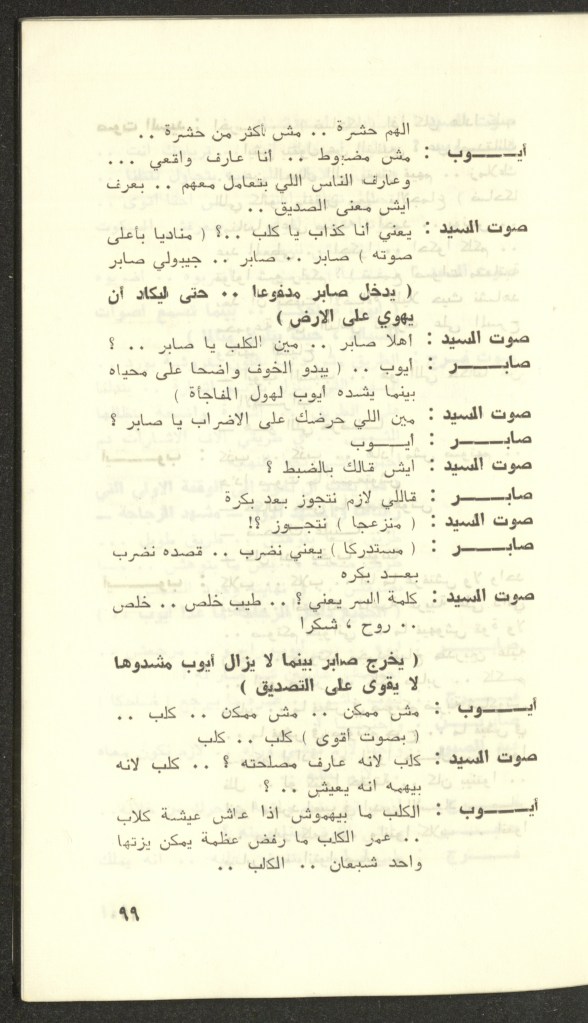 الهم حشرة .. مش أكثر من حشرة ..
أيـــوب : مش مضبوط .. انا عارف واقعي ...
وعارف الناس اللي بتعامل معهم .. بعرف
ايش معنى الصديق ..
صوت السيد : يعني انا كذاب يا كلب ..؟ ( مناديا بأعلى
صوته ) صابر .. صابر .. جيبولي صابر
( يدخل صابر مدفوعا .. حتى ليكاد أن
يهوي على الارض )
صوت السيد : اهلا صابر .. مين الكلب يا صابر .. ؟
صابـــر : ايوب .. ( يبدو الخوف واضحا على محياه
بينما يشده ايوب لهول المفاجأة )
صوت السيد : مين اللي حرضك على الاضراب يا صابر ؟
صابـــر : ايـــوب
صوت السيد : ايش قالك بالضبط ؟
صابـــر : قاللي لازم نتجوز بعد بكرة
صوت السيد : ( منزعجا ) نتجـوز ؟!
صابـــر : ( مستدركا ) يعني نضرب .. قصده نضرب
بعـد بكره
صوت السيد : كلمة السر يعني ؟ .. طيب خلص .. خلص
.. روح ، شكرا
( يخرج صابر بينما لا يزال أيوب مشدوها
لا يقوى على التصديق )
أيـــوب : مش ممكن .. مش ممكن .. كلب ..
( بصوت أقوى ) كلب .. كلب
صوت السيد : كلب لانه عارف مصلحته ؟ .. كلب لانه
بيهمه انه يعيش .. ؟
أيـــوب : الكلب ما بيهموش اذا عاش عيشة كلاب
.. عمر الكلب ما رفض عظمة يمكن يزتها
واحد شبعان .. الكلب ..
٩٩